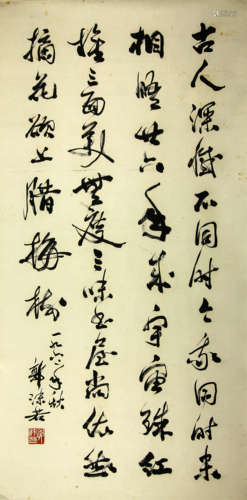 古人深憾不同时今我同时未
相晤廿六年成宇宙殊红
旗三面美無度三味书屋尚依然
摘花欲上腊梅树
一九六二年秋
郭沫若